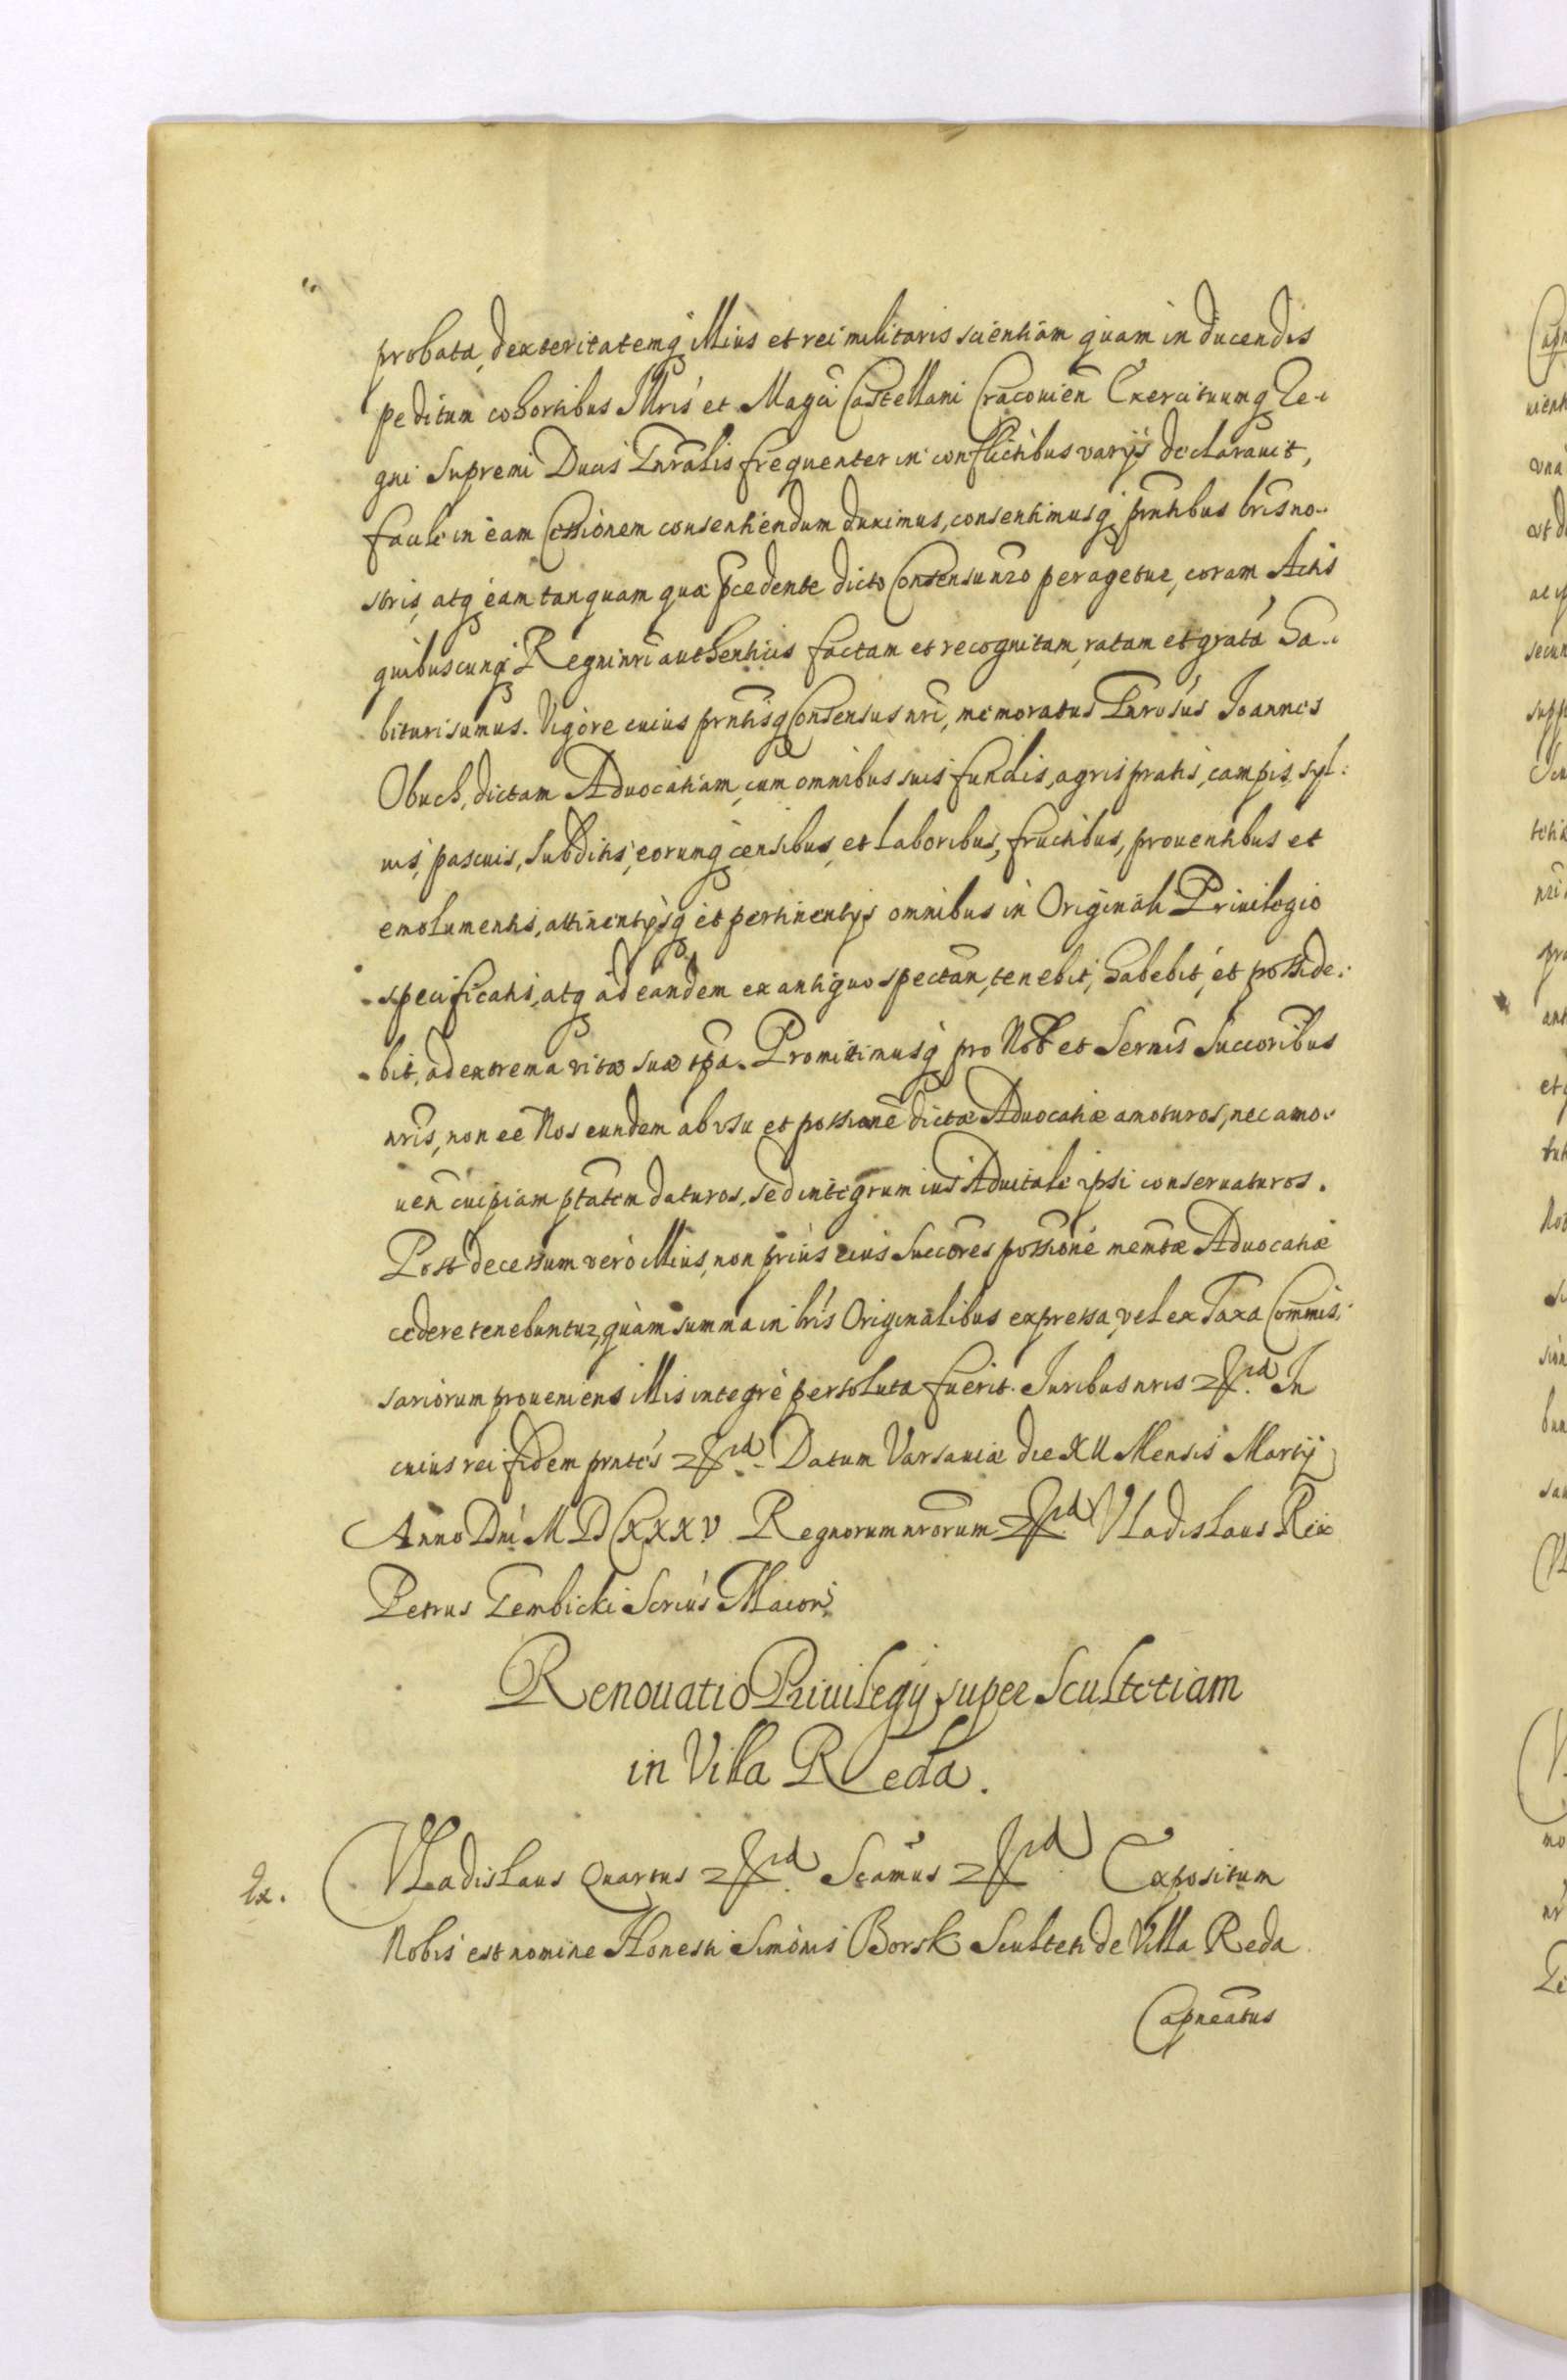 probata, dexteritatemq illius et rei militaris scientiam quam in ducendis
peditum cohortibus Illris et Magci Castellani Cracouien Exercituumq Re-
gni Supremi Ducis Gnralis frequenter in conflictibus varijs declarauit,
facile in eam Cessionem consentiendum duximus, consentimusq prntibus lris no-
stris, atq eam tanquam quæ pcedente dicto Consensu nro peragetur, coram Actis
quibuscunq Regni nri authenticis factam et recognitam, ratam et gratā ha-
bituri sumus. Vigore cuius prntisq Consensus nri, memoratus Gnrosus Joannes
Obuch, dictam Aduocatiam, cum omnibus suis fundis, agris pratis, campis, syl-
uis, pascuis, subditis, eorunq censibus, et laboribus, fructibus, prouentibus et
emolumentis, attinentijsq et pertinentijs omnibus in Originali Priuilegio
specificatis, atq ad eandem ex antiquo spectan, tenebit, habebit, et posside-
bit, ad extrema vitæ suæ tpa. Promittimusq pro Nob et Sernis Succoribus
nris, non eē Nos eundem ab vsu et possione dictæ Aduocatiæ amoturos, nec amo-
uen cuipiam ptatem daturos, sed integrum ius Aduitale ipsi conseruaturos.
Post decessum verò illius, non priùs eius Succores possionē memtæ Aduocatiæ
cedere tenebuntur, quàm summa in lris Originalibus expressa, vel ex Taxa Commis-
sariorum proueniens illis integrè persoluta fuerit. Iuribus nris &rd. In
cuius rei fidem prntes &rd. Datum Varsauiæ die XII Mensis Martij
Anno Dni M D C XXXV Regnorum nrorum &rd Vladislaus Rex
Petrus Gembicki Scrius Maior
Renouatio Priuilegij super Scultetiam
in Villa Reda.
Ex. Vladislaus Quartus &rd. Scamus &rd. Expositum
Nobis est nomine Honesti Simonis Borsk Sculteti de Villa Reda
Capneatus